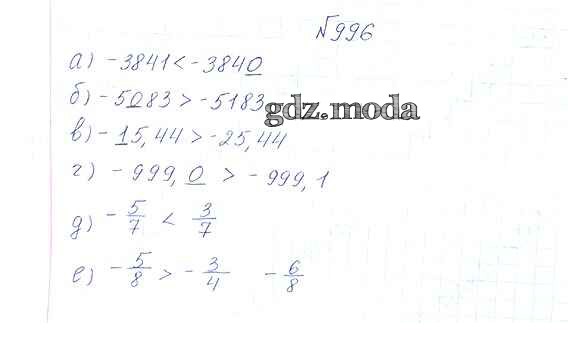 №996
а) -3841 < -3840
б) -5083 > -5183
gdz.moda
в) -15,44 > -25,44
г) -999,0 > -999,1
д) -5/7 < 3/7
е) -5/8 > -3/4 -6/8